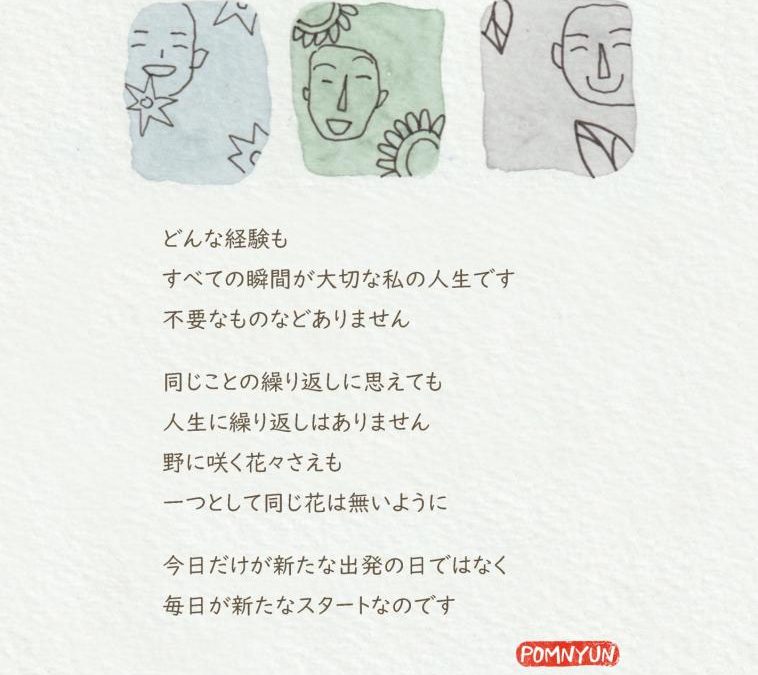 どんな経験も
すべての瞬間が大切な私の人生です
不要なものなどありません
同じことの繰り返しに思えても
人生に繰り返しはありません
野に咲く花々さえも
一つとして同じ花は無いように
今日だけが新たな出発の日ではなく
毎日が新たなスタートなのです
POMNYUN